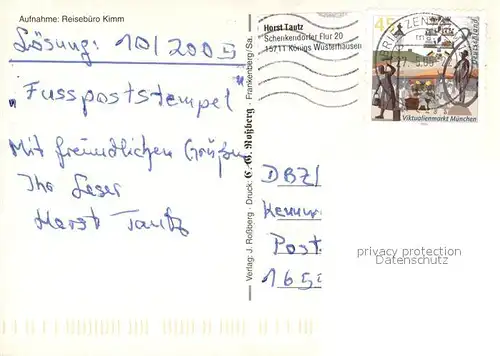 Aufnahme: Reisebüro Kimm
Lösung: 10/2005
„Fusspoststempel"
Mit freundlichen Grüßen
Ihr Leser
Horst Tautz
Verlag: J. Roßberg · Druck: C. G. Roßberg · Frankenberg/Sa.
Horst Tautz
Schenkendorfer Flur 20
15711 Königs Wusterhausen
45
BRIEFZENTRUM
Viktualienmarkt München
DBZ/
Post
165
privacy protection
Datenschutz